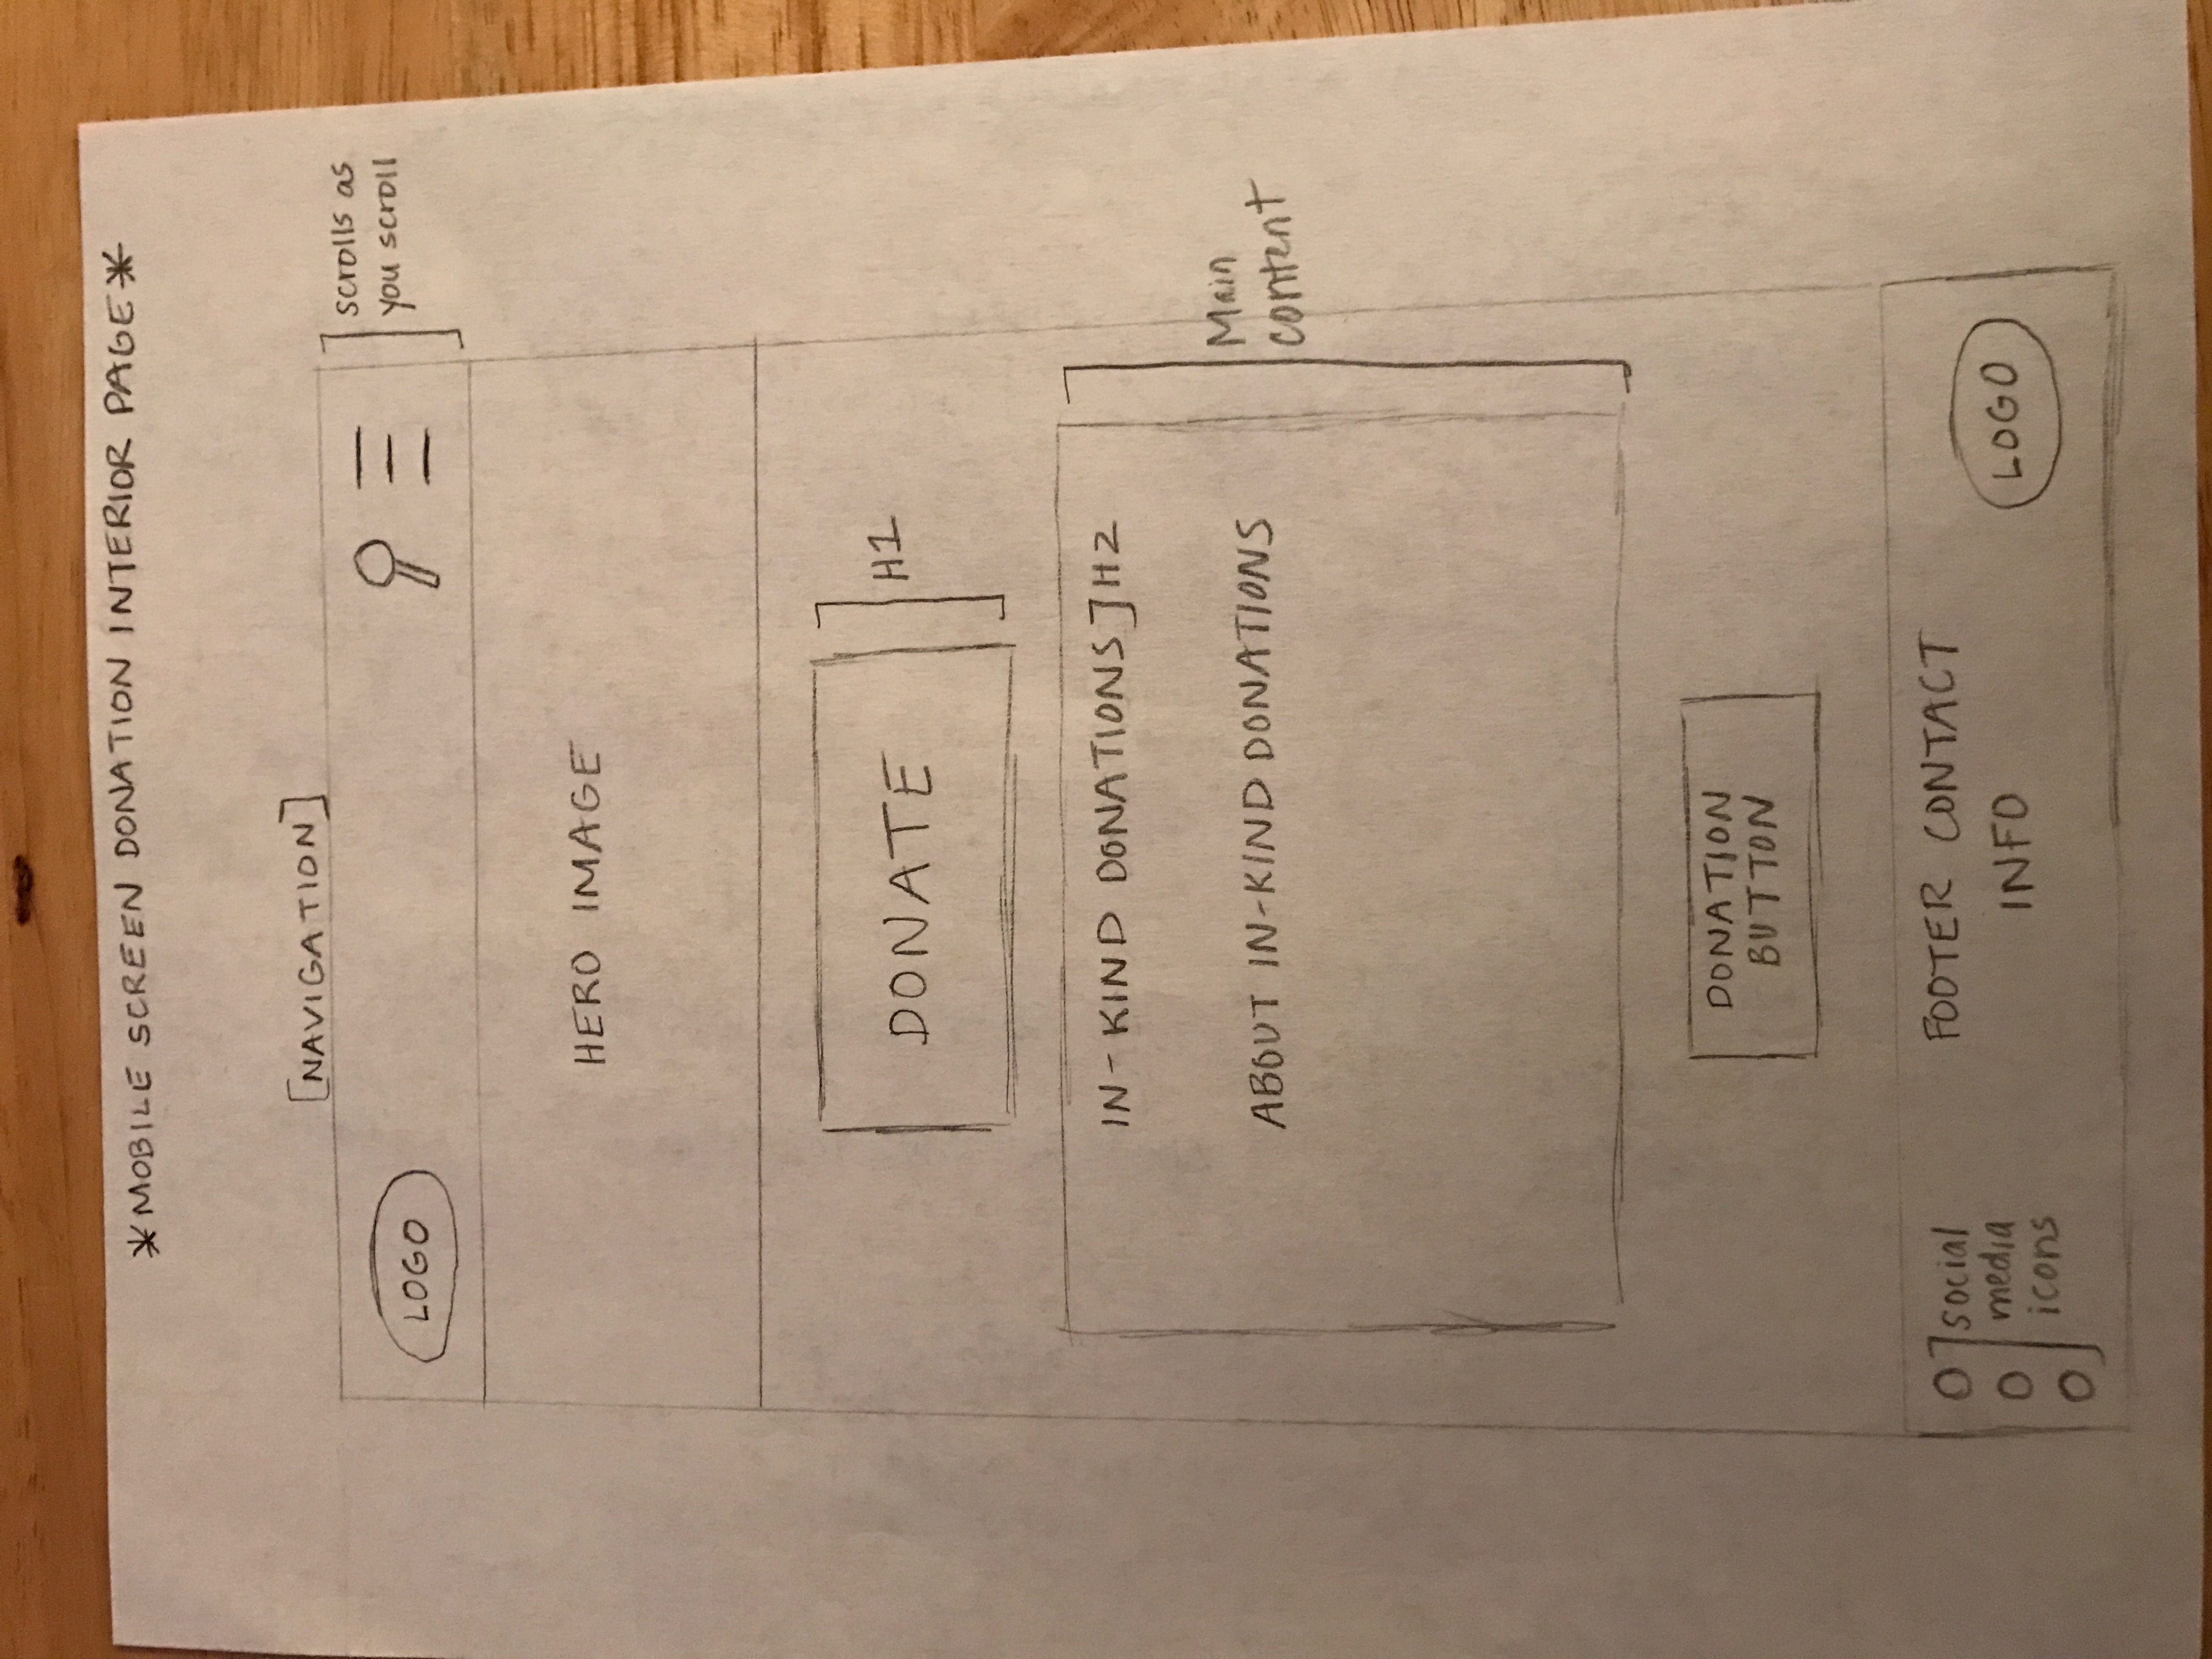 *MOBILE SCREEN DONATION INTERIOR PAGE*
[NAVIGATION]
LOGO
scrolls as
you scroll
HERO IMAGE
DONATE
H1
IN-KIND DONATIONS]H2
ABOUT IN-KIND DONATIONS
Main
content
DONATION
BUTTON
social
media
icons
FOOTER CONTACT
INFO
LOGO